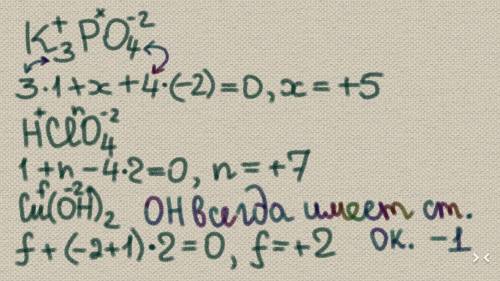 K₃⁺PˣO₄⁻²
3·1+x+4·(-2)=0, x=+5
H⁺ClⁿO₄⁻²
1+n-4·2=0, n=+7
Cuᶠ(O⁻²H⁺)₂ OH всегда имеет ст.
f+(-2+1)·2=0, f=+2 ок. -1